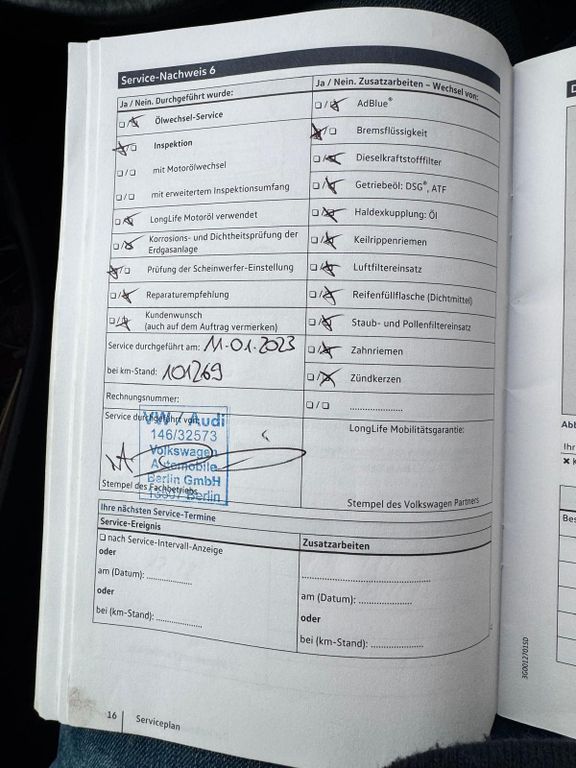 Service-Nachweis 6
Ja / Nein. Durchgeführt wurde:
☐/☒ Ölwechsel-Service
☒/☐ Inspektion
☐/☐ mit Motorölwechsel
☐/☐ mit erweitertem Inspektionsumfang
☐/☒ LongLife Motoröl verwendet
☐/☒ Korrosions- und Dichtheitsprüfung der
Erdgasanlage
☒/☐ Prüfung der Scheinwerfer-Einstellung
☐/☒ Reparaturempfehlung
☐/☒ Kundenwunsch
(auch auf dem Auftrag vermerken)
Service durchgeführt am: 11.01.2023
bei km-Stand: 101269
Rechnungsnummer:
Service durchgeführt von:
VW / Audi
146/32573
Volkswagen
Automobile
Berlin GmbH
Berlin
Stempel des Fachbetriebs
Ja / Nein. Zusatzarbeiten – Wechsel von:
☐/☒ AdBlue®
☒/☐ Bremsflüssigkeit
☐/☒ Dieselkraftstofffilter
☐/☒ Getriebeöl: DSG®, ATF
☐/☒ Haldexkupplung: Öl
☐/☒ Keilrippenriemen
☐/☒ Luftfiltereinsatz
☐/☒ Reifenfüllflasche (Dichtmittel)
☐/☒ Staub- und Pollenfiltereinsatz
☐/☒ Zahnriemen
☐/☒ Zündkerzen
☐/☐ ....................
LongLife Mobilitätsgarantie:
Stempel des Volkswagen Partners
Ihre nächsten Service-Termine
Service-Ereignis
☐ nach Service-Intervall-Anzeige
oder
am (Datum): ................
oder
bei (km-Stand): ................
Zusatzarbeiten
................................
am (Datum): ....................
oder
bei (km-Stand): ....................
16 Serviceplan
3G0012701SD